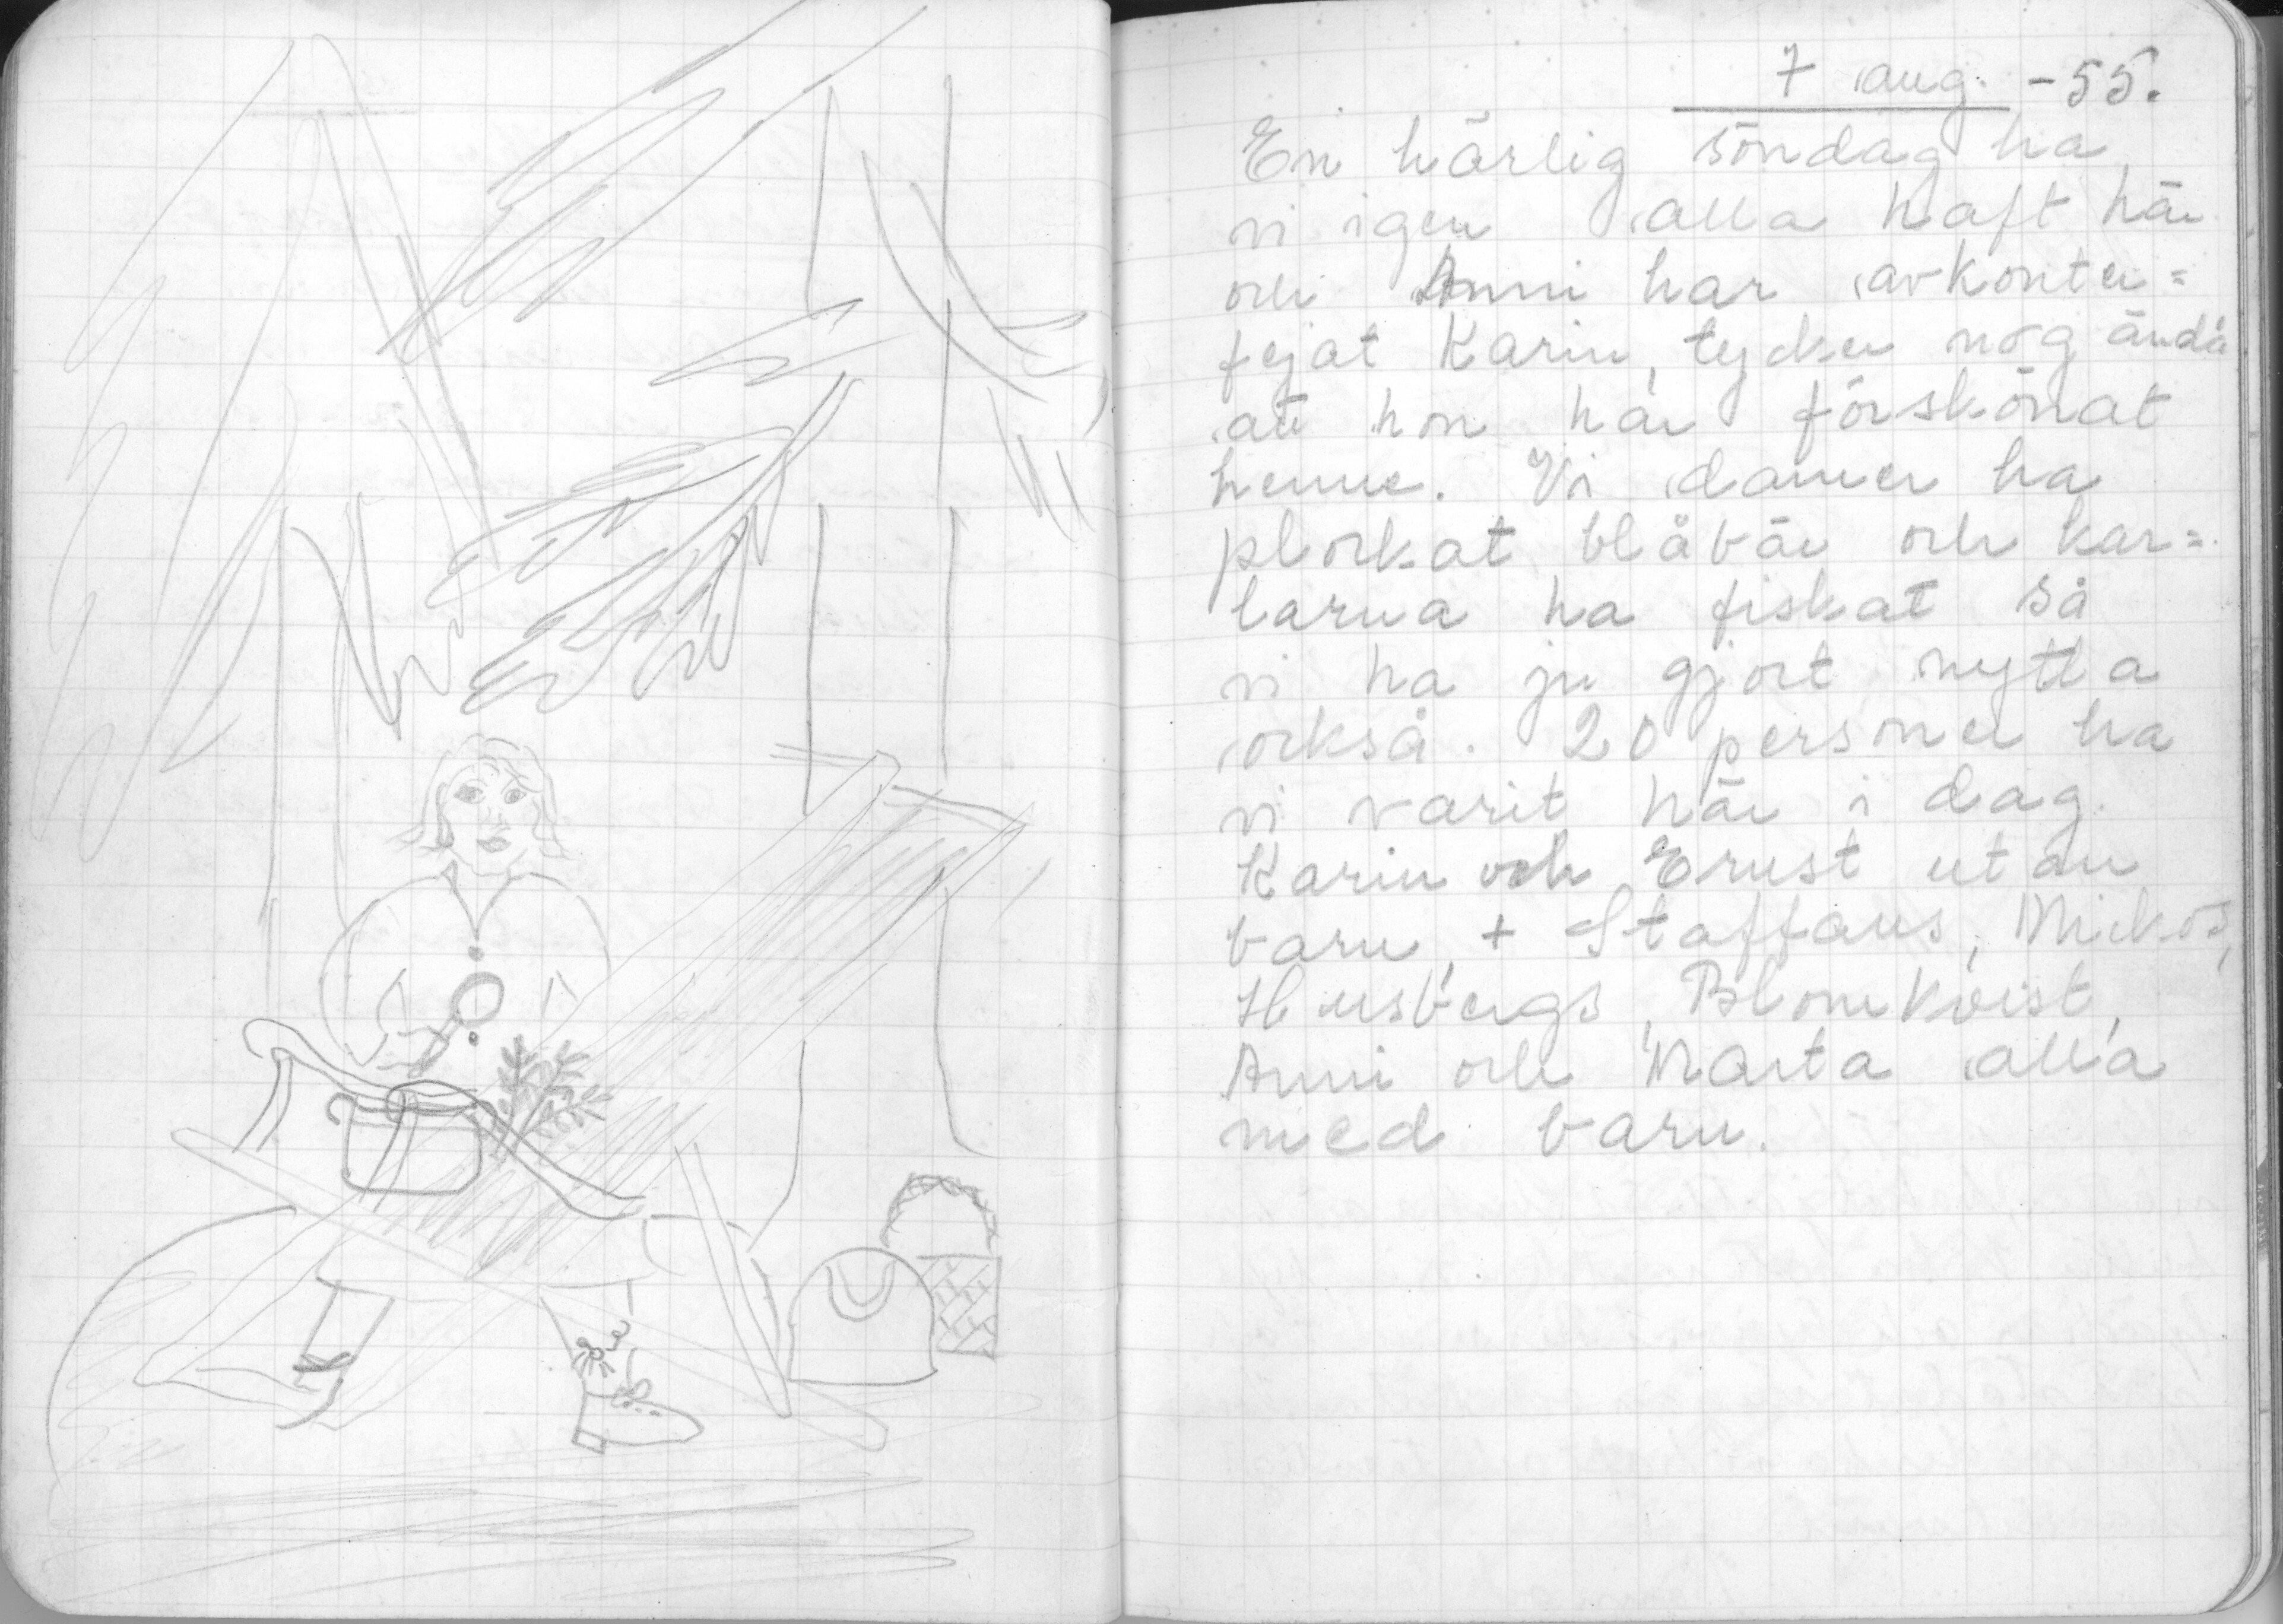 7 aug. -55.
En härlig söndag ha
vi igen alla haft här
och Anni har avkonter=
fejat Karin, tycker nog ändå
att hon har förskönat
henne. Vi damer ha
plockat blåbär och kar=
larna ha fiskat så
vi ha ju gjort nytta
också. 20 personer ha
vi varit här i dag.
Karin och Ernst utan
barn, + Staffans, Mickos,
Husbergs, Blomkvist,
Anni och Märta alla
med barn.